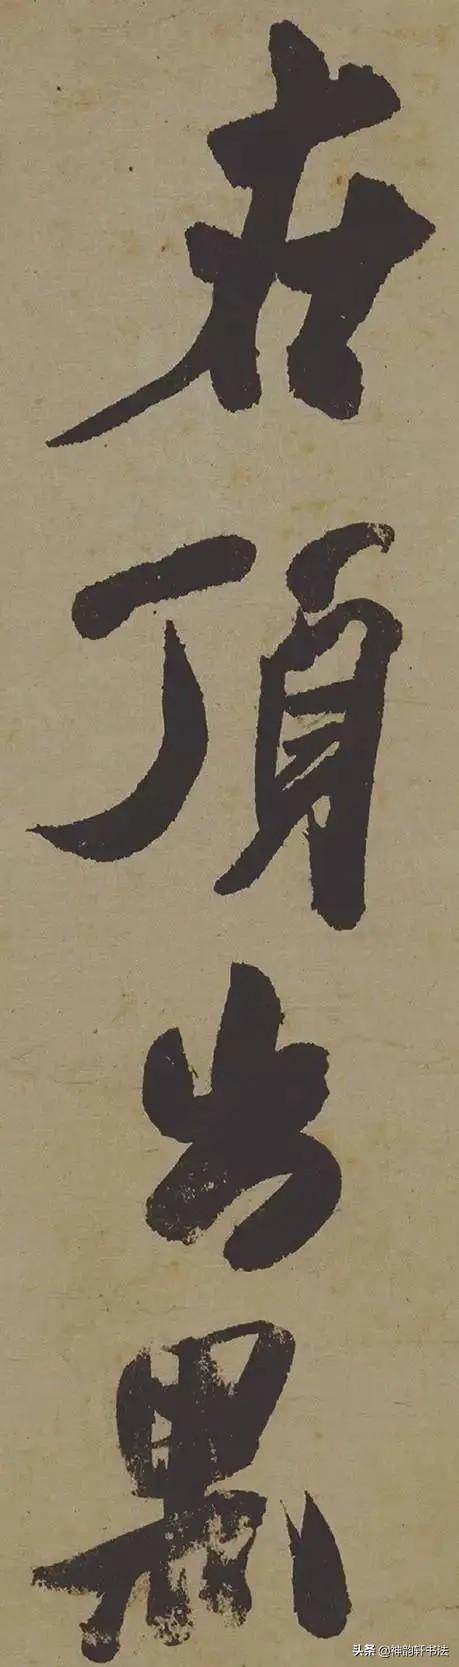 在頂出黑
头条 @神韵轩书法